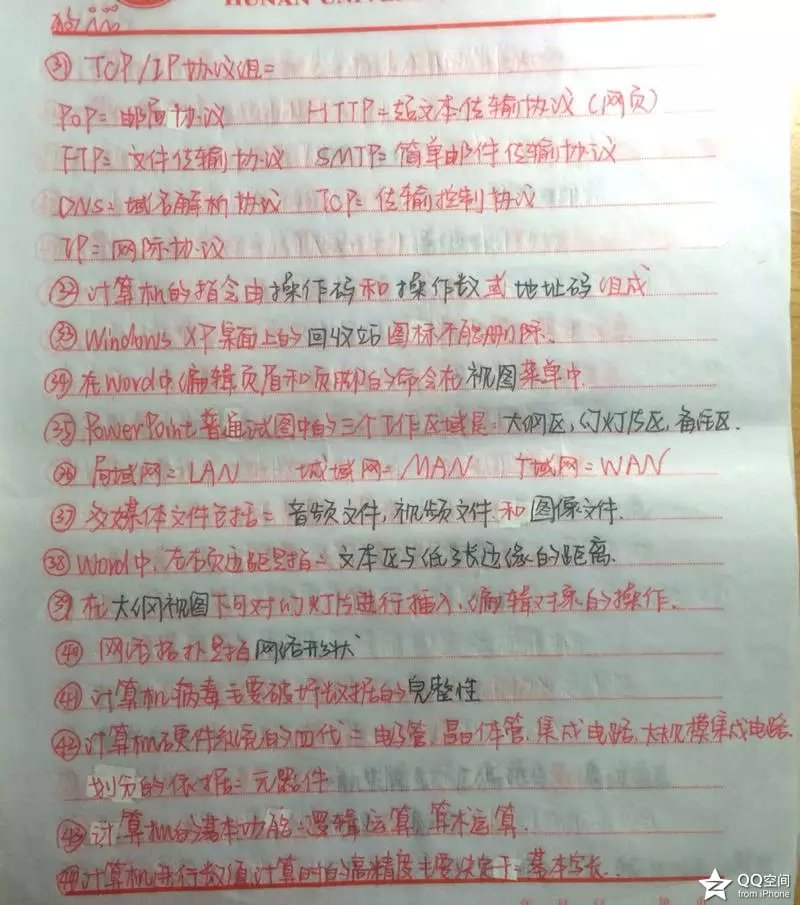 HUNAN UNIVER
③① TCP/IP协议组=
POP=邮局协议 HTTP=超文本传输协议（网页）
FTP=文件传输协议 SMTP=简单邮件传输协议
DNS=域名解析协议 TCP=传输控制协议
IP=网际协议
③② 计算机的指令由操作码和操作数或地址码组成
③③ Windows XP桌面上的回收站图标不能删除.
③④ 在Word中编辑页眉和页脚的命令在视图菜单中.
③⑤ PowerPoint普通试图中的三个工作区域是:大纲区,幻灯片区,备注区.
③⑥ 局域网=LAN 城域网=MAN 广域网=WAN
③⑦ 多媒体文件包括=音频文件,视频文件和图像文件.
③⑧ Word中,左右页边距是指=文本区与纸张边缘的距离.
③⑨ 在大纲视图下可对幻灯片进行插入、编辑对象的操作.
④⓪ 网络拓扑是指网络形状
④① 计算机病毒主要破坏数据的完整性
④② 计算机硬件系统的四代=电子管,晶体管,集成电路,大规模集成电路.
划分的依据=元器件
④③ 计算机的基本功能=逻辑运算,算术运算.
④④ 计算机进行数值计算时的高精度主要决定于=基本字长.
QQ空间
from iPhone